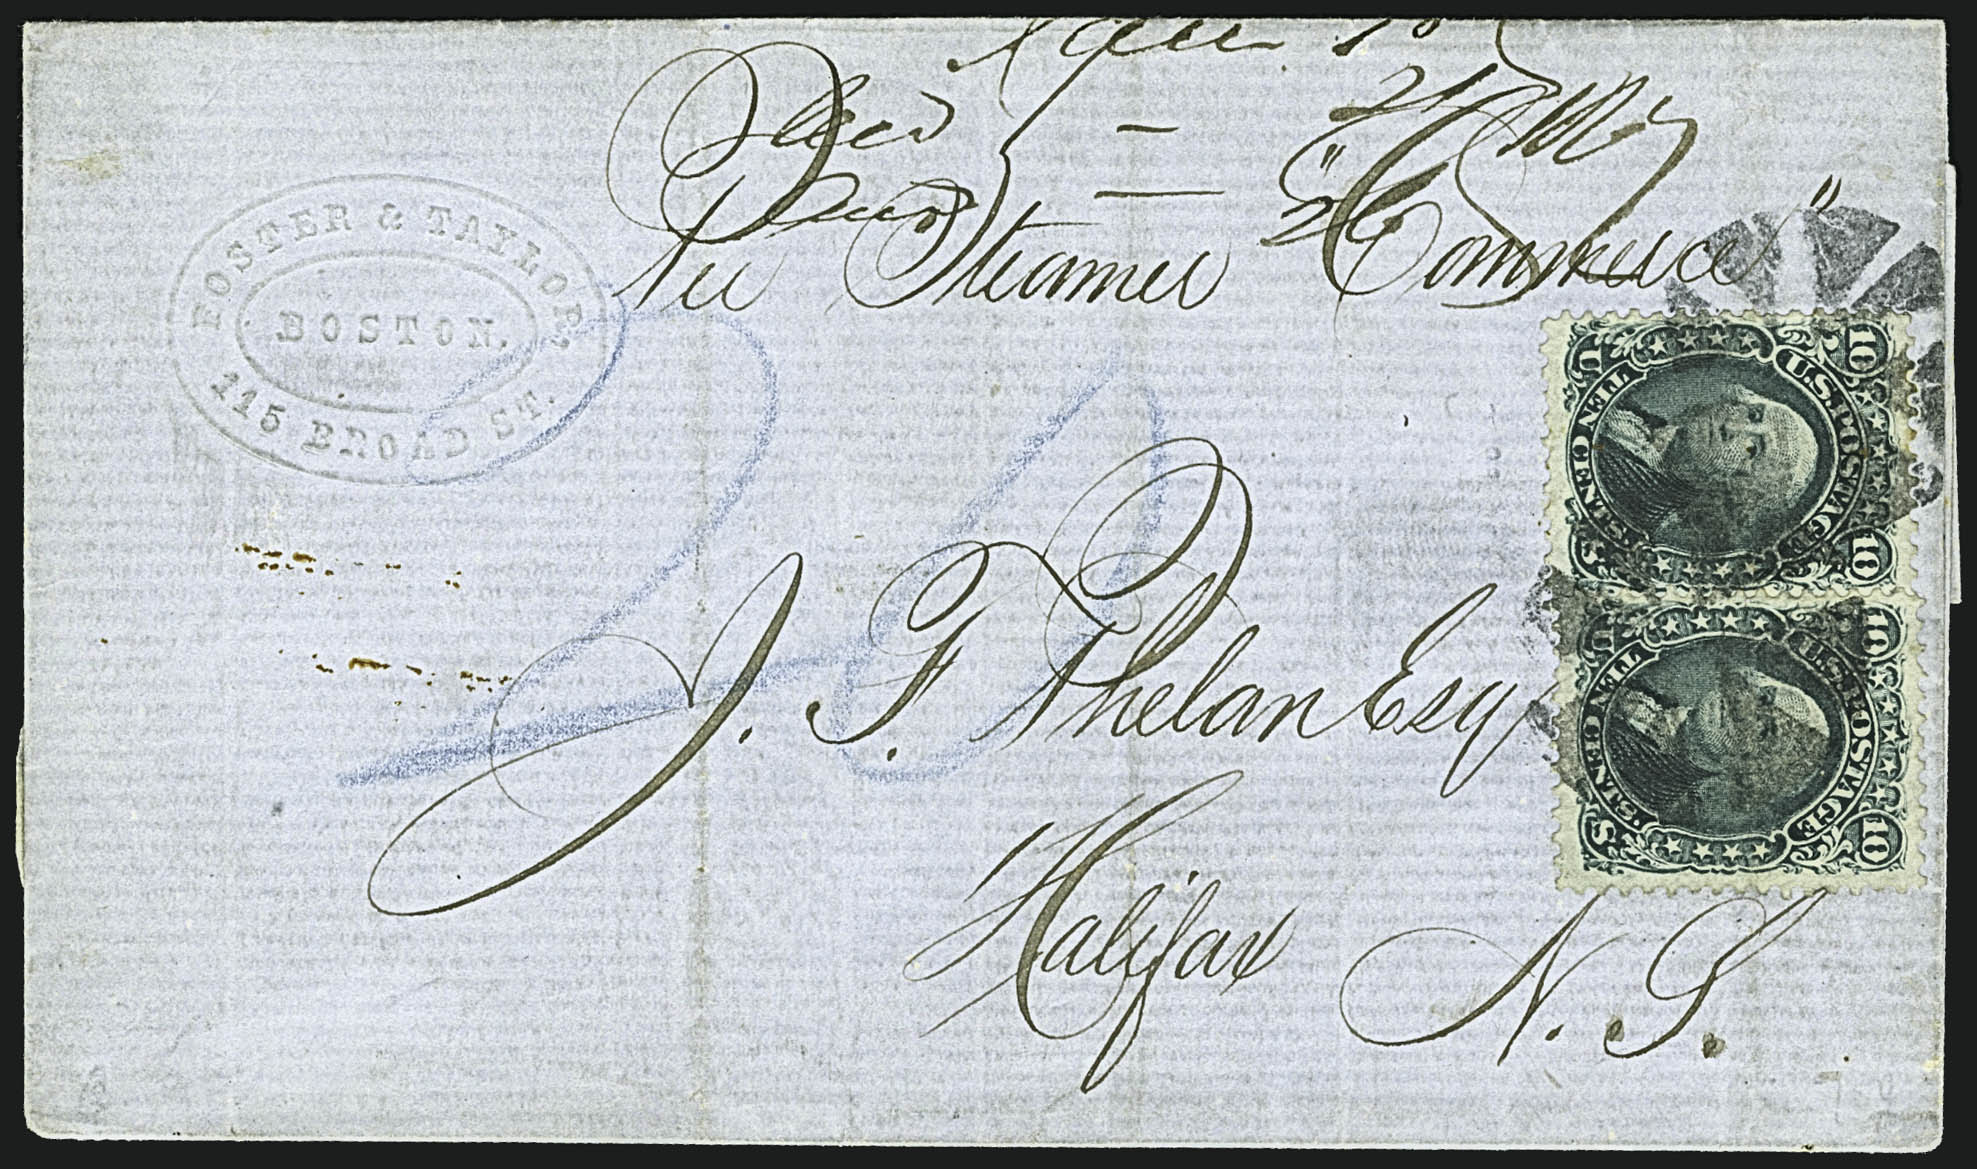 FOSTER & TAYLOR,
BOSTON.
115 BROAD ST.
Per Steamer "Commerce"
J. F. Phelan Esq
Halifax
N. S.
U.S. POSTAGE
TEN CENTS
U S
10 10
U.S. POSTAGE
TEN CENTS
U S
10 10